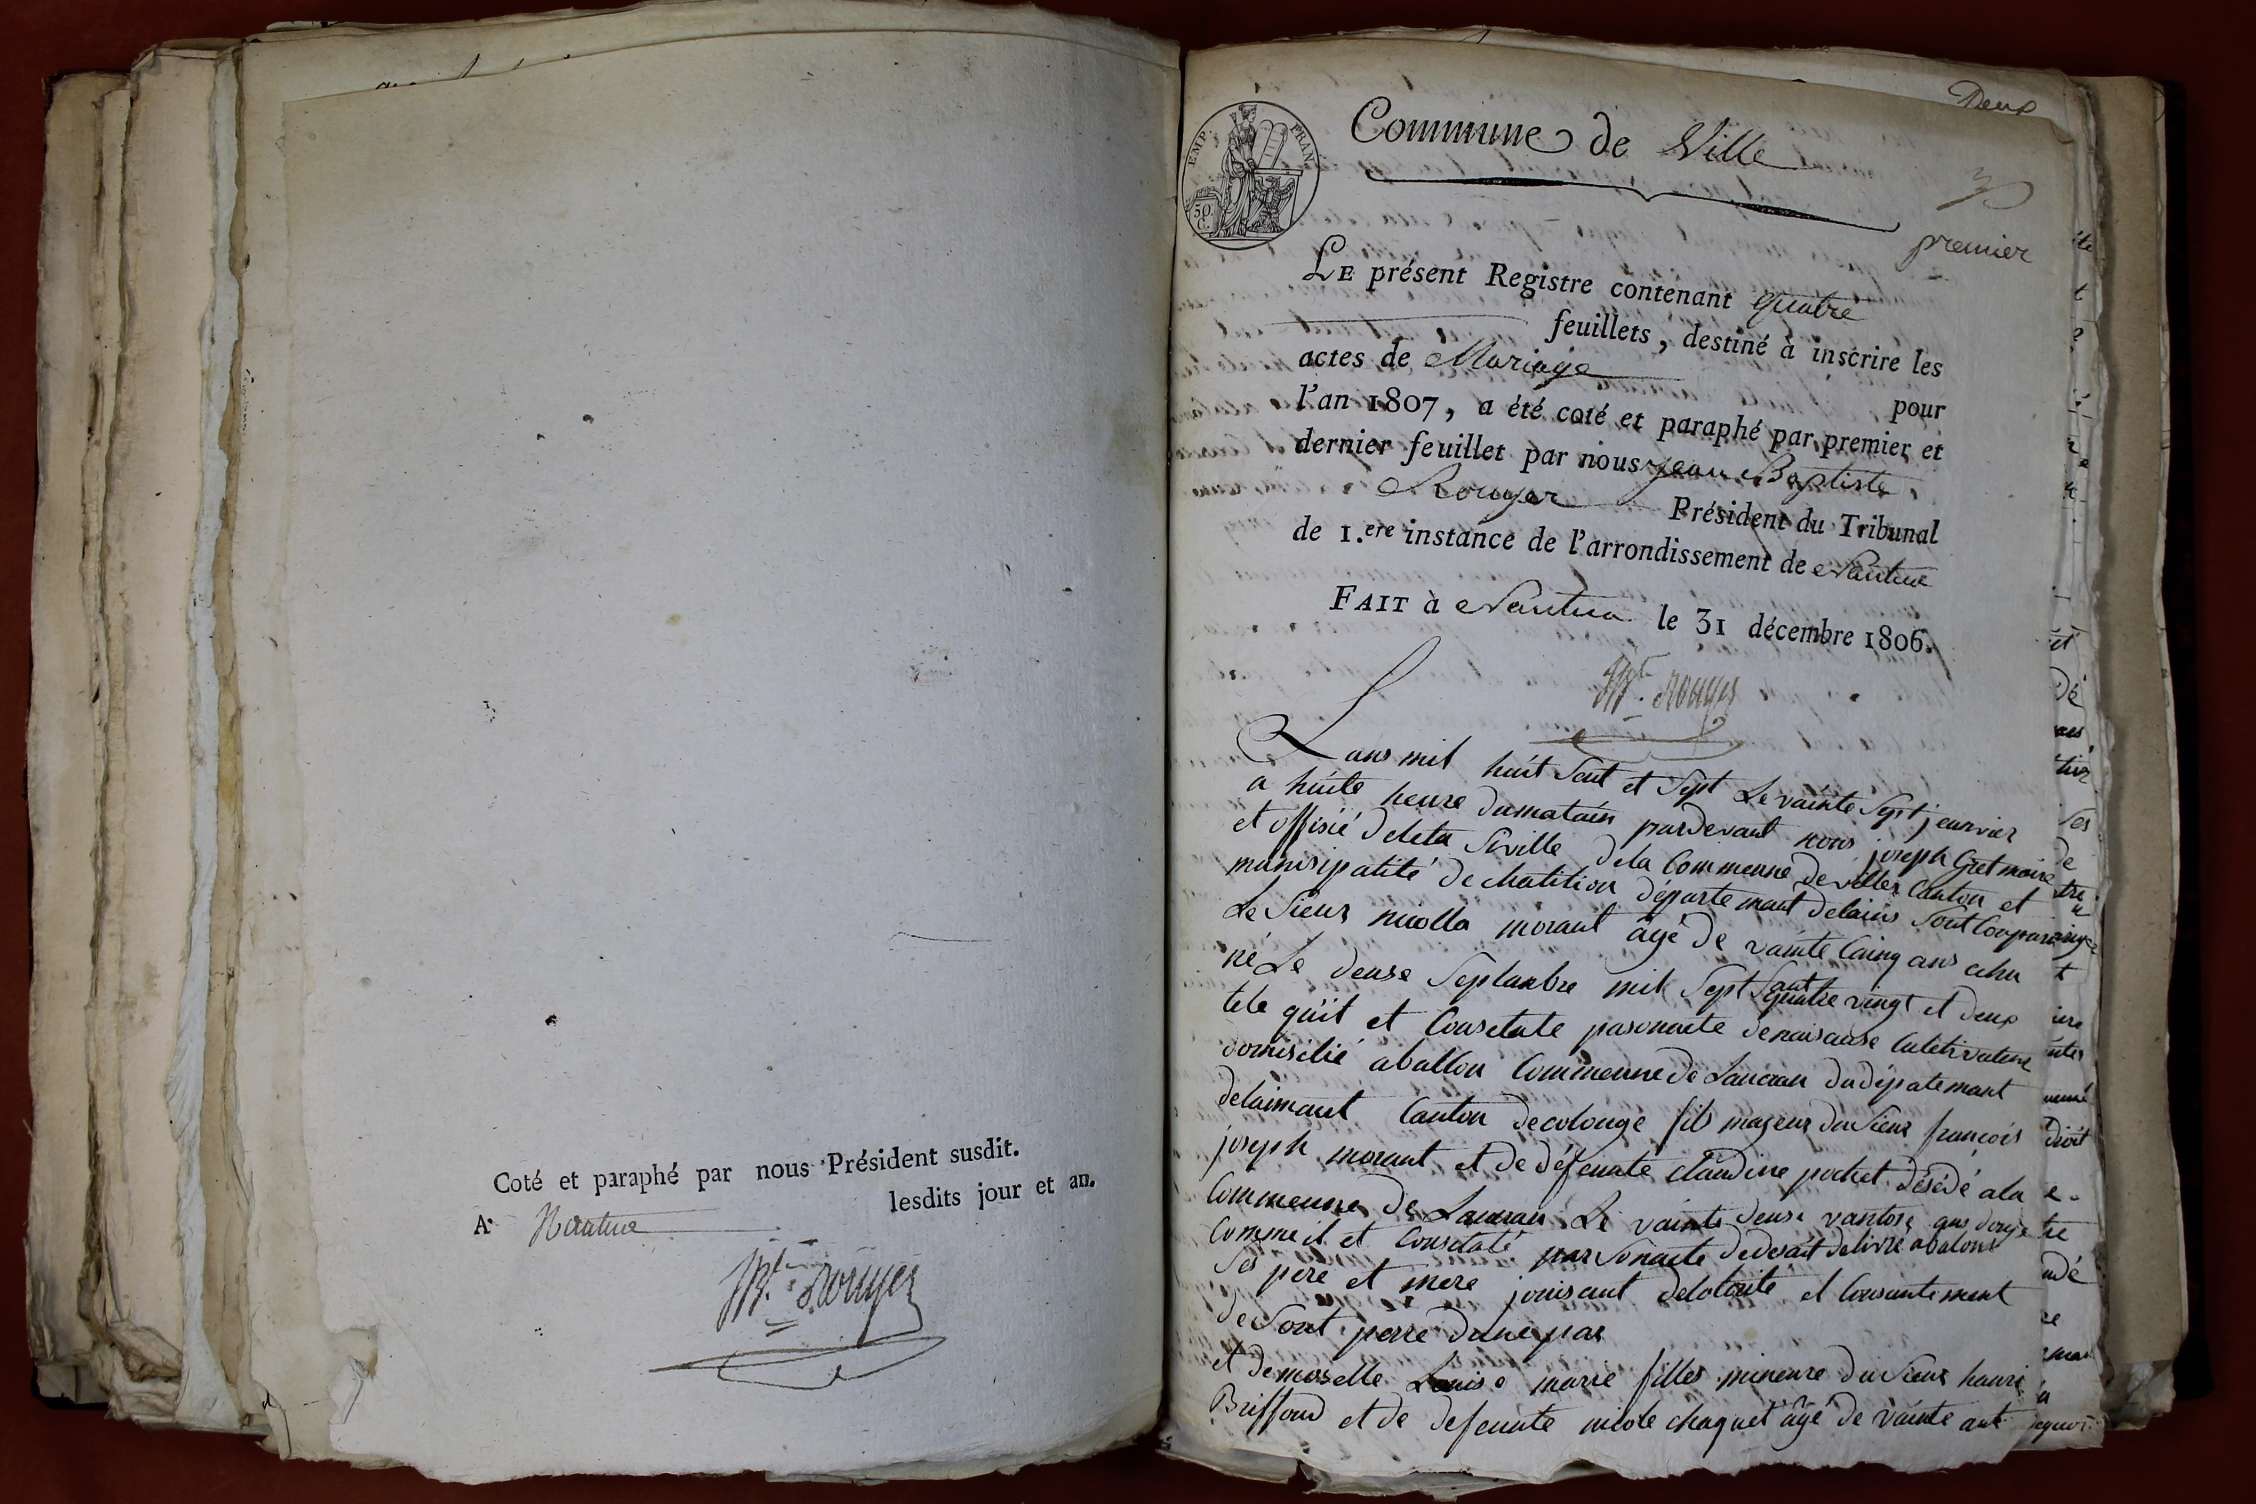 Coté et paraphé par nous Président susdit.
A Nantua lesdits jour et an.
JBte Rouyer
Deux
EMP. FRAN.
50 C.
Commune de Ville
premier
LE présent Registre contenant quatre
feuillets, destiné à inscrire les
actes de Mariage pour
l'an 1807, a été coté et paraphé par premier et
dernier feuillet par nous Jean Baptiste
Rouyer Président du Tribunal
de 1.ere instance de l'arrondissement de Nantua
FAIT à Nantua le 31 décembre 1806.
JBte Rouyer
Lans mil huit Sent et Sept Le vainte Sept jeanvier
a huite heure dumatain pardevant nous joseph Gret maire
et offisié deleta Siville dela Commeune de villes Canton et
munisipatité de chatition départemant delains Sont Conparu
Le Sieur nicolla morant âgé de vainte Cainq ans
né Le deuse Septanbre mil Sept Sant quatre vingt et deux
tele quit et Consetate parsonacte denaisanse Culetivateur
domisilié aballon Commeune de Lancran dudépatemant
delaimant Canton decolonge fils mageur du Sieur françois
joseph morant et de défeunte claudine pochet désédé ala
Commeune de Lancran Le vainte deuse vantose ans douze
Comme il et Consetaté par Sonacte dedesait delivré abalons
Ses pere et mere jouisant delotorité et Consantement
de Sont perre dune par
et demoiselle Louise marie filles mineure du Sieur hanri
Briffond et de defeunte nicole chaquet âgé de vainte ant